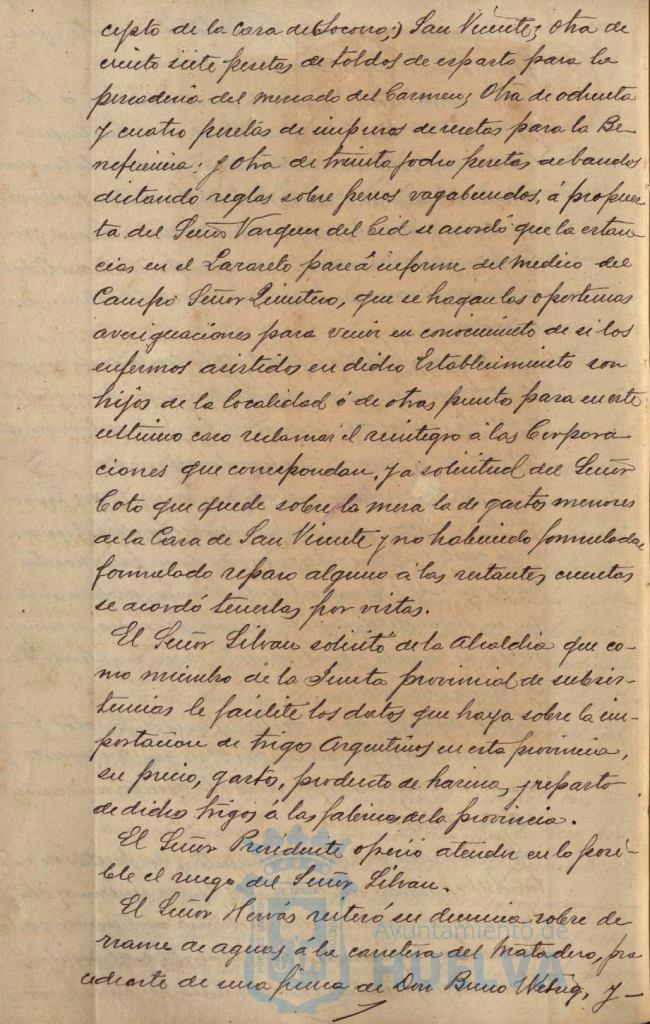 cepto de la casa de Socorro,) San Vicente; otra de
ciento siete pesetas de toldos de esparto para la
pescaderia del mercado del Carmen; Otra de ochenta
y cuatro pesetas de impresos de recetas para la Be-
neficencia; y otra de treinta y ocho pesetas de bandos
dictando reglas sobre perros vagabundos, á propues
ta del Señor Vazquez del Cid se acordó que la estan-
cias en el Lazareto pase á informe del medico del
Campo Señor Quintero, que se hagan las oportunas
averiguaciones para venir en conocimiento de si los
enfermos asistidos en dicho Establecimiento son
hijos de la localidad ó de otros punto para en este
ultimo caso reclamar el reintegro á las Corpora
ciones que correspondan, y á solicitud del Señor
Coto que quede sobre la mesa la de gastos menores
de la Casa de San Vicente y no habiendo formulado
formulado reparo alguno á las restantes cuentas
se acordó tenerlas por vistas.
El Señor Silvan solicitó de la Alcaldia que co-
mo miembro de la Junta provincial de subsis-
tencias le facilite los datos que haya sobre la im-
portacion de trigos Argentinos en esta provincia,
su precio, gastos, producto de harina, y reparto
de dichos trigos á las fabricas de la provincia.
El Señor Presidente ofreció atender en lo posi-
ble el ruego del Señor Silvan.
El Señor Hervás reiteró su denuncia sobre de
rrame de aguas á la carretera del Matadero, pro
cedente de una finca de Don Bruno Wetzig, y-
Ayuntamiento de
HUELVA